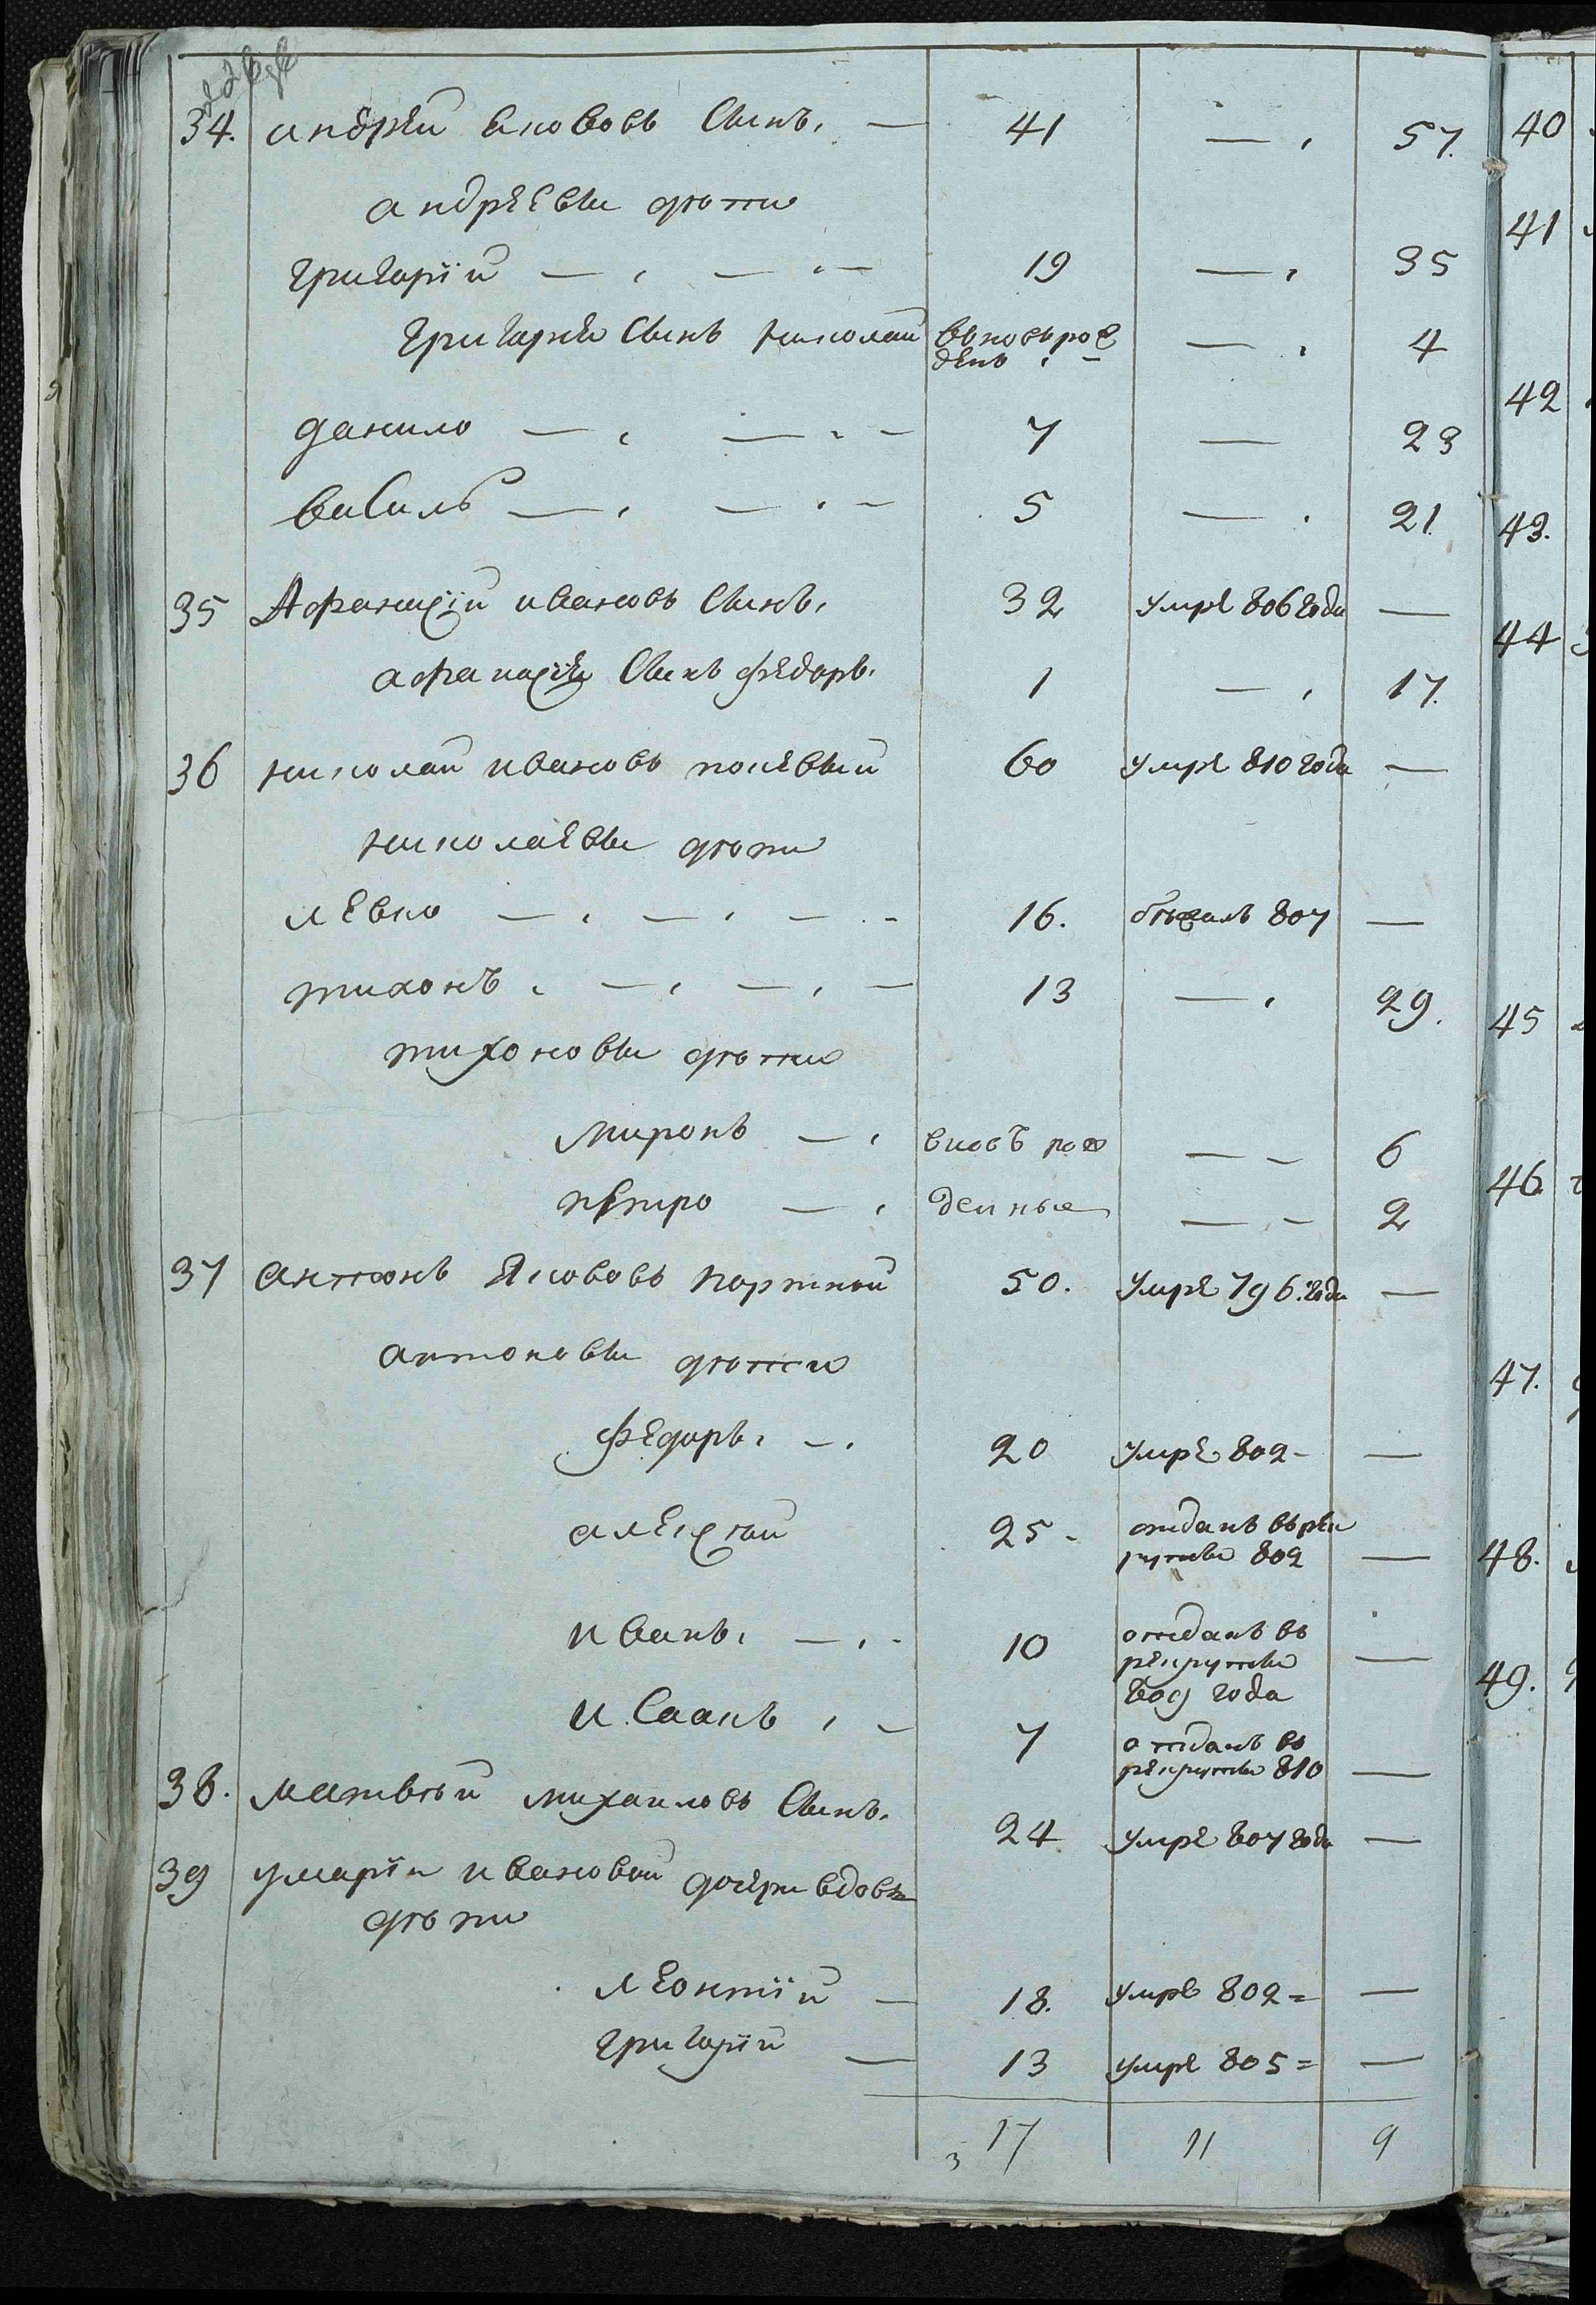 34. андрей Якововъ Сынъ, — 41 — , 57.
андрѣевы дѣти
григорій — , — , — 19 — , 35
григорія Сынъ николай вьновьрож — , 4
денъ , —
данило — , — , — 7 — 23
василь — , — , — 5 — . 21.
35 Афанасій ивановъ Сынъ, 32 умре 806 года —
афанасія Сынъ федоръ. 1 — , 17.
36 николай ивановъ полевый 60 умре 810 года —
николаевы дѣти
левко — , — , — . - 16. бѣжалъ 807 —
тихонъ , — , — , — 13 — , 29.
тихоновы дѣти
миронъ — , вновъ рож — - 6
петро — , денные — - 2
37 антонъ Якововъ портной 50. умре 796. года —
антоновы дѣти
федоръ, - . 20 умре 802 - —
алексѣй 25 - отданъ върек
руты 802 —
иванъ, — , - 10 отданъ въ
рекруты —
809 года
исаакъ , - 7 отданъ въ
рекруты 810 —
38. матвѣй михаиловъ Сынъ. 24 умре 807 года —
39 умаріи ивановой дочери вдовы
дѣти
леонтій — 18. умре 802 = —
григорій — 13 умре 805 = —
з 17 11 9
40
41
42
43.
44
45
46.
47.
48.
49.